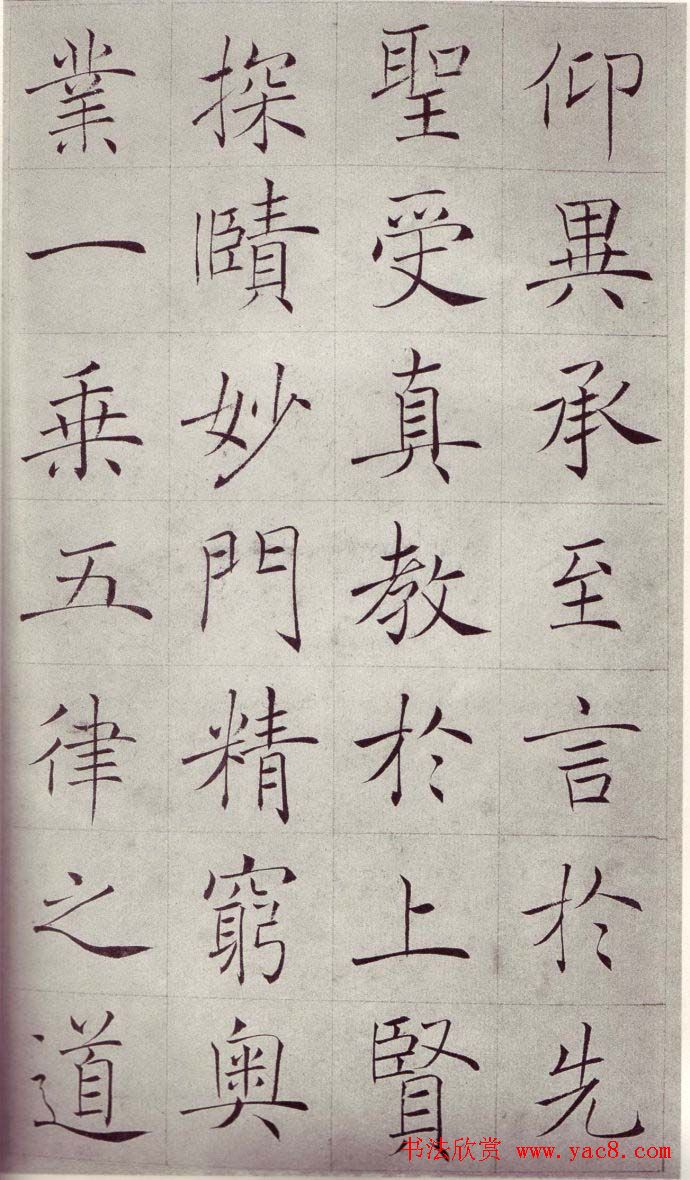 仰異承至言於先
聖受真教於上賢
探賾妙門精窮奥
業一乗五律之道
书法欣赏 www.yac8.com